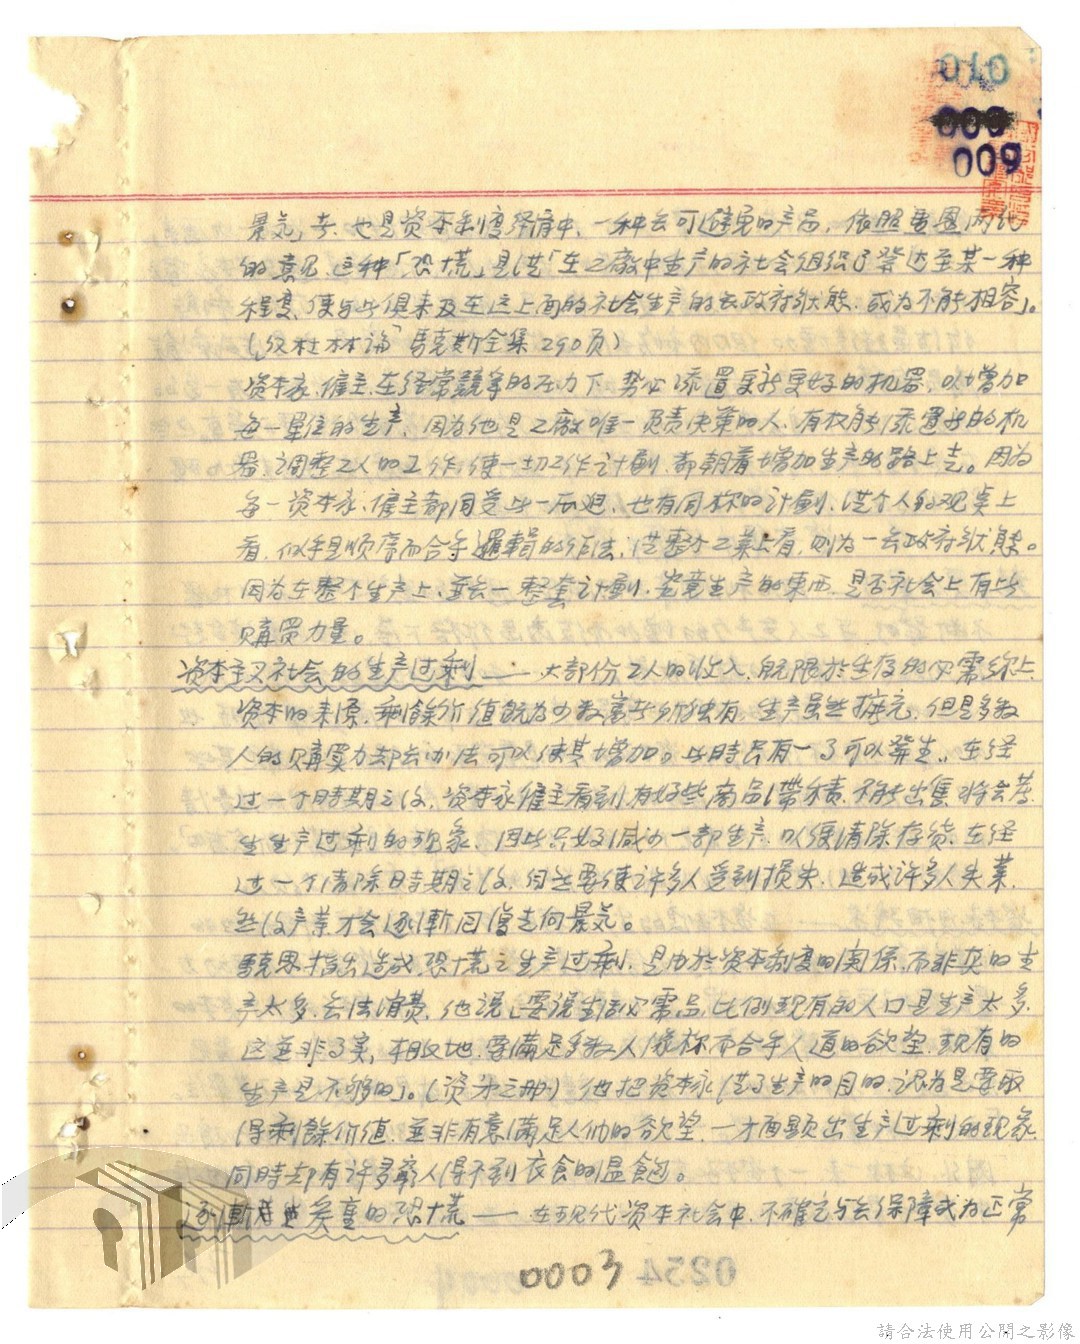 010
009
009
景気」等、也是资本制度经济中，一种无可避免的产品，依照
的意见，这种「恐慌」是从「在工廠中生产的社会组织了發达至某一种
程度，使与此俱来及在这上面的社会生产的无政府狀態，成为不能相容」。
(「反杜林論」馬克斯全集290页)
资本家、僱主，在经常競争的压力下，势必添置更新更好的机器，以增加
每一單位的生产，因为他是工廠唯一负责决策的人，有权能添置新的机
器，调整工人的工作，使一切工作计劃，都朝着增加生产的路上走。因为
每一资本家、僱主都同受此一压迫，也有同样的计劃，從个人的观点上
看，似乎是顺序而合乎邏輯的作法，從整个工業上看，则为一无政府狀態。
因为在整个生产上，並无一整套计劃，究竟生产的東西，是否社会上有此
購買力量。
资本主义社会的生产过剩——大部份工人的收入，既限於生存的必需线上
资本的来源，剩餘价值既为少数富者所独有，生产虽然擴充，但是多数
人的購買力却无办法可以使其增加。此時只有一事可以發生，在经
过一个時期之後，资本家僱主看到有好些商品滯积，不能出售，将会產
生生产过剩的现象，因此只好減少一部生产，以便清除存货，在经
过一个清除時期之後，自然要使许多人受到損失，造成许多人失業，
然後产業才会逐漸回復走向景気。
馬克思指出造成恐慌之生产过剩，是由於资本制度的関係，而非真的生
产太多，无法消费，他说「要说生活必需品，比例现有的人口是生产太多，
这並非事实，相反地，要満足多数人像样而合乎人道的欲望，现有的
生产是不够的」。(资本三册) 他把资本家從事生产的目的，認为是要取
得剩餘价值，並非有意満足人们的欲望，才面显出生产过剩的现象，
同時却有许多窮人得不到衣食的温飽。
逐漸嚴重的恐慌——在现代资本社会中，不確定与无保障成为正常
0003
0254
請合法使用公開之影像